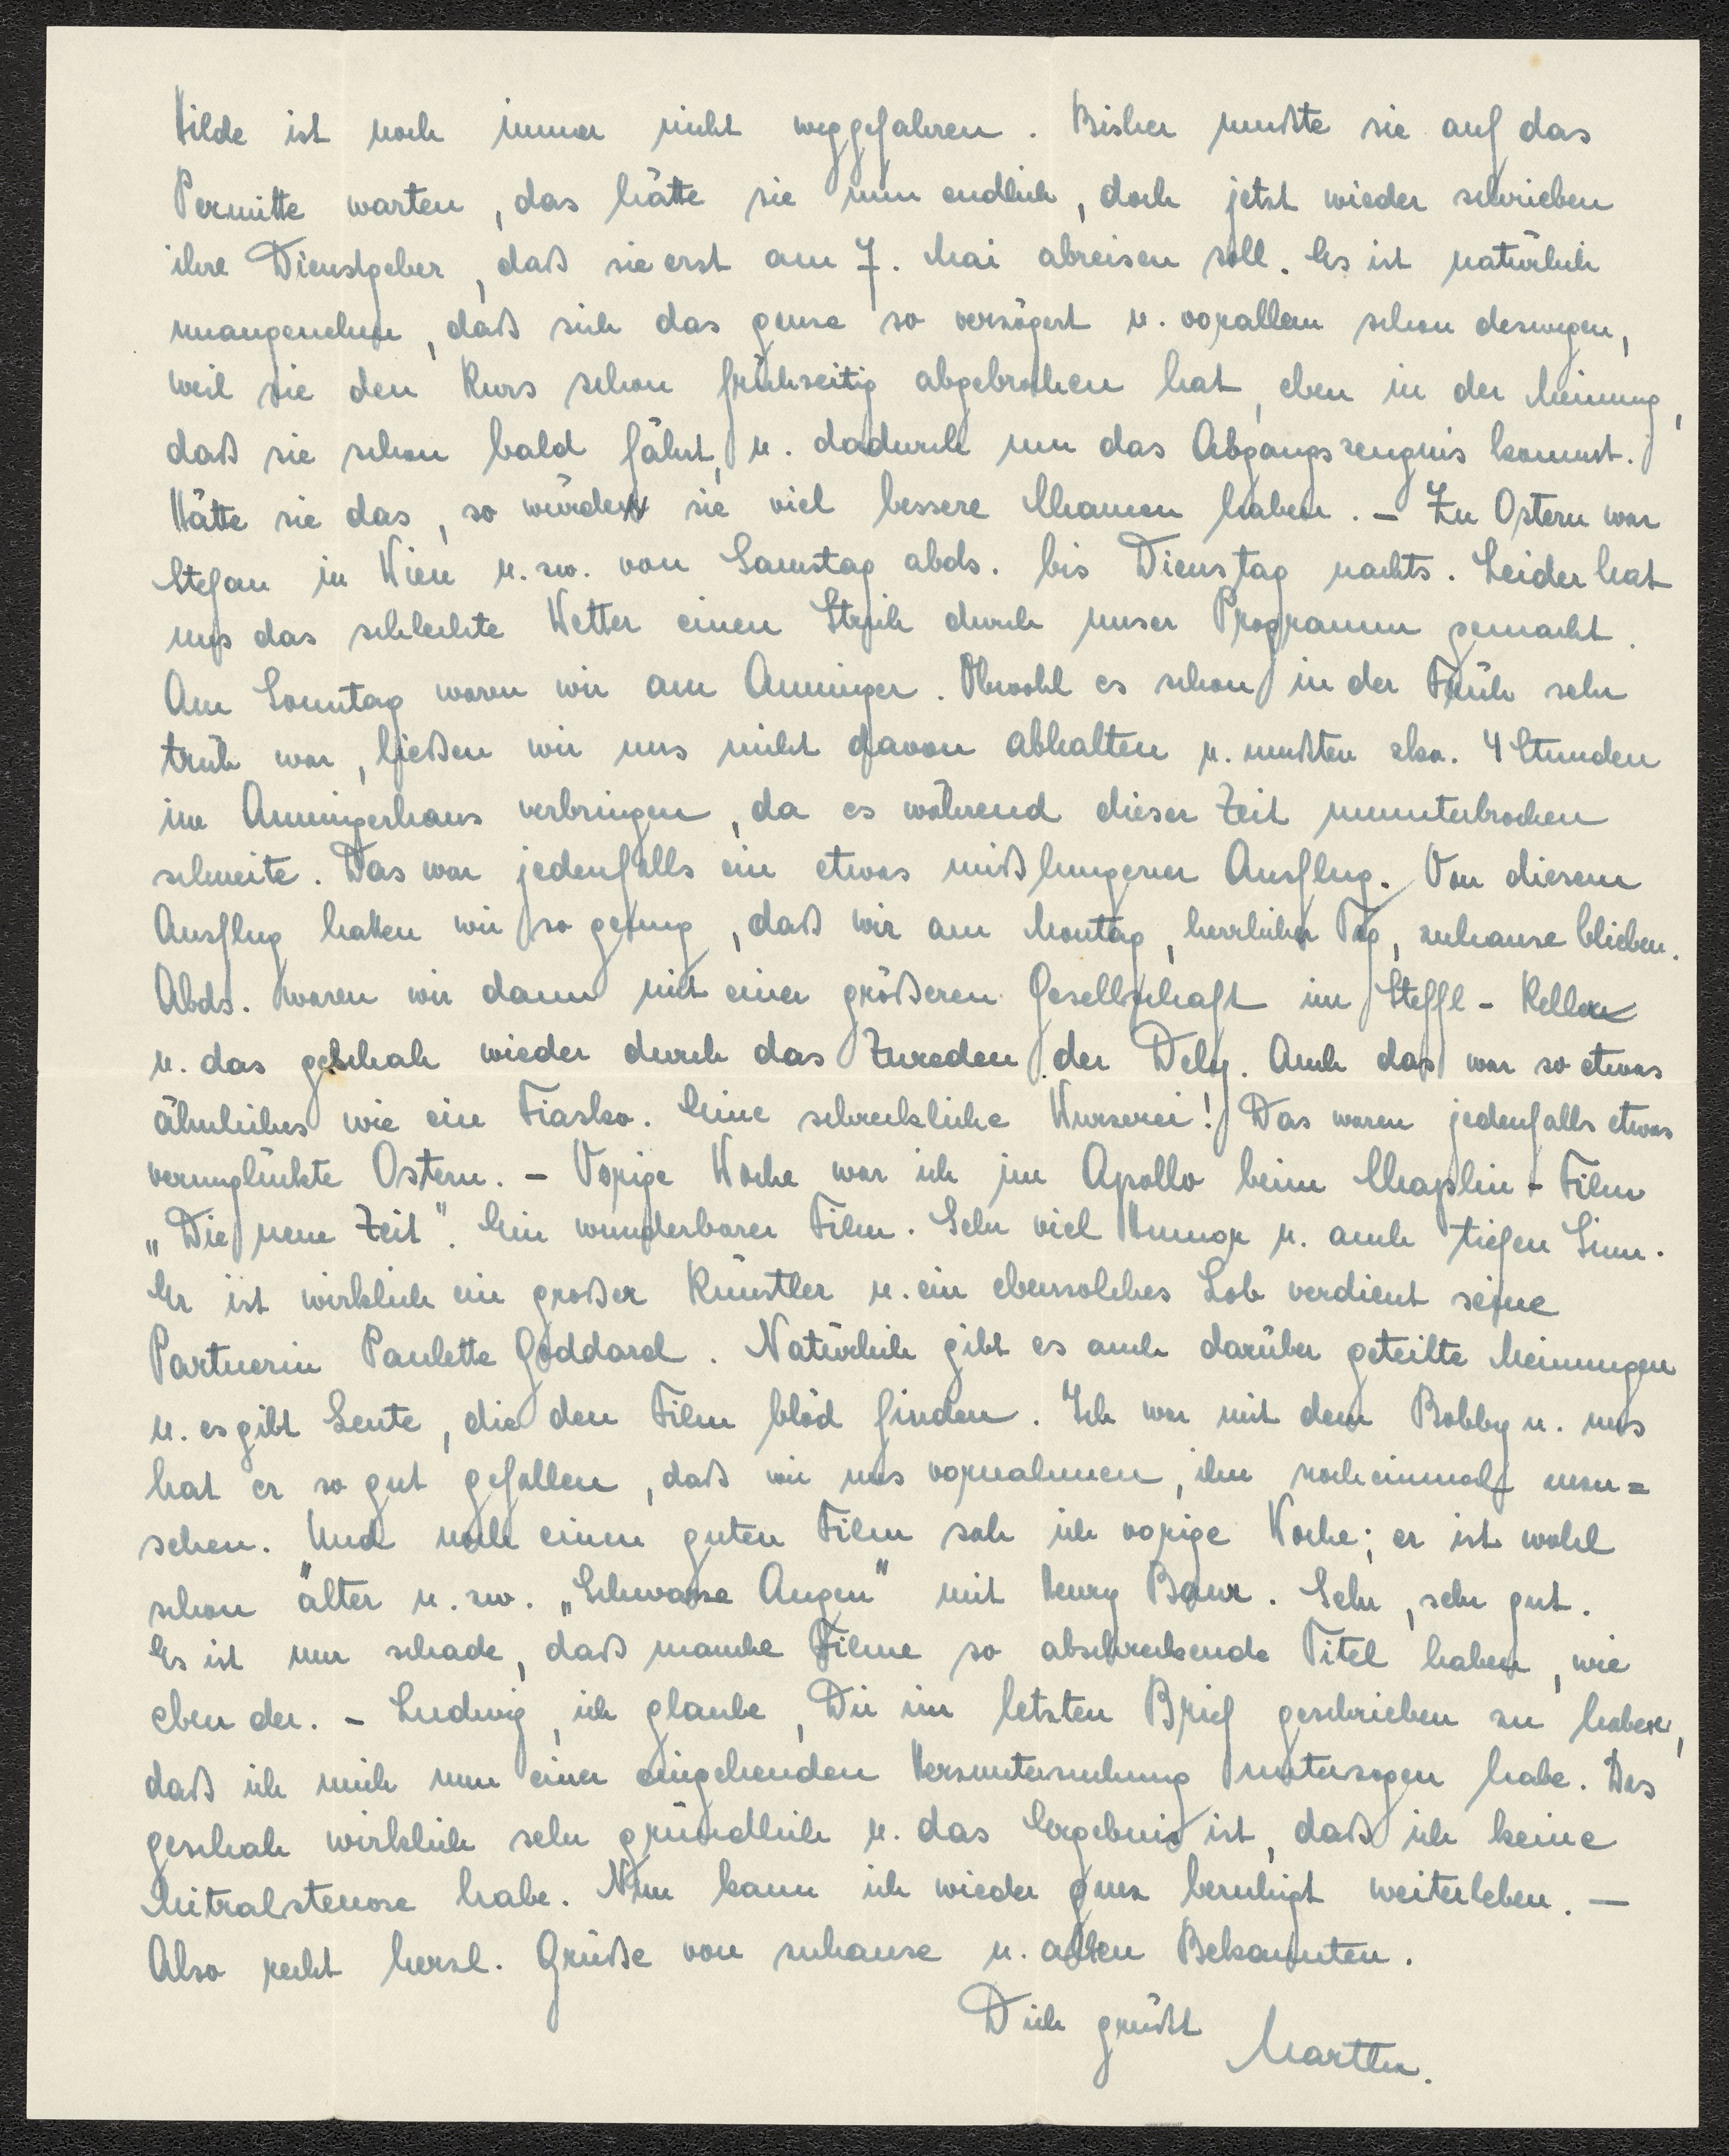 Hilde ist noch immer nicht weggefahren. Bisher mußte sie auf das
Permitte warten, das hätte sie nun endlich, doch jetzt wieder schrieben
ihre Dienstgeber, daß sie erst am 7. Mai abreisen soll. Es ist natürlich
unangenehm, daß sich das ganze so verzögert u. vorallem schon deswegen,
weil sie den Kurs schon frühzeitig abgebrochen hat, eben in der Meinung,
daß sie schon bald fährt, u. dadurch um das Abgangszeugnis kommt.
Hätte sie das, so würde sie viel bessere Chancen haben. - Zu Ostern war
Stefan in Wien u. zw. von Samstag abds. bis Dienstag nachts. Leider hat
uns das schlechte Wetter einen Strich durch unser Programm gemacht.
Am Sonntag waren wir am Anninger. Obwohl es schon in der Früh sehr
trüb war, ließen wir uns nicht davon abhalten u. mußten zka. 4 Stunden
im Anningerhaus verbringen, da es während dieser Zeit ununterbrochen
schneite. Das war jedenfalls ein etwas mißlungener Ausflug. Von diesem
Ausflug hatten wir so genug, daß wir am Montag, herrlicher Tag, zuhause blieben.
Abds. waren wir dann mit einer größeren Gesellschaft im Steffl-Keller
u. das geschah wieder durch das Zureden der Dely. Auch das war so etwas
ähnliches wie ein Fiasko. Eine schreckliche Wurzerei! Das waren jedenfalls etwas
verunglückte Ostern. - Vorige Woche war ich im Apollo beim Chaplin-Film
„Die neue Zeit". Ein wunderbarer Film. Sehr viel Humor u. auch tiefen Sinn.
Er ist wirklich ein großer Künstler u. ein ebensolches Lob verdient seine
Partnerin Paulette Goddard. Natürlich gibt es auch darüber geteilte Meinungen
u. es gibt Leute, die den Film blöd finden. Ich war mit dem Bobby u. uns
hat er so gut gefallen, daß wir uns vornahmen, ihn nocheinmal anzu=
sehen. Und noch einen guten Film sah ich vorige Woche; er ist wohl
schon älter u. zw. „Schwarze Augen" mit Henry Baur. Sehr, sehr gut.
Es ist nur schade, daß manche Filme so abschreckende Titel haben, wie
eben der. - Ludwig, ich glaube, Dir im letzten Brief geschrieben zu haben,
daß ich mich nun einer eingehenden Herzuntersuchung unterzogen habe. Das
geschah wirklich sehr gründlich u. das Ergebnis ist, daß ich keine
Mitralstenose habe. Nun kann ich wieder ganz beruhigt weiterleben. -
Also recht herzl. Grüße von zuhause u. allen Bekannten.
Dich grüßt
Martha.